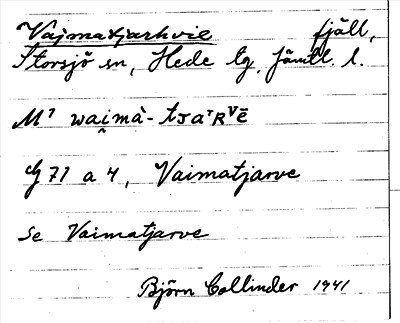 Vajmatjarhvie fjäll,
Storsjö sn, Hede tg, Jämtl. l.
M¹ wai̯mà-tJaʳRⱽē
G 71 a 4, Vaimatjarve
se Vaimatjarve
Björn Collinder 1941